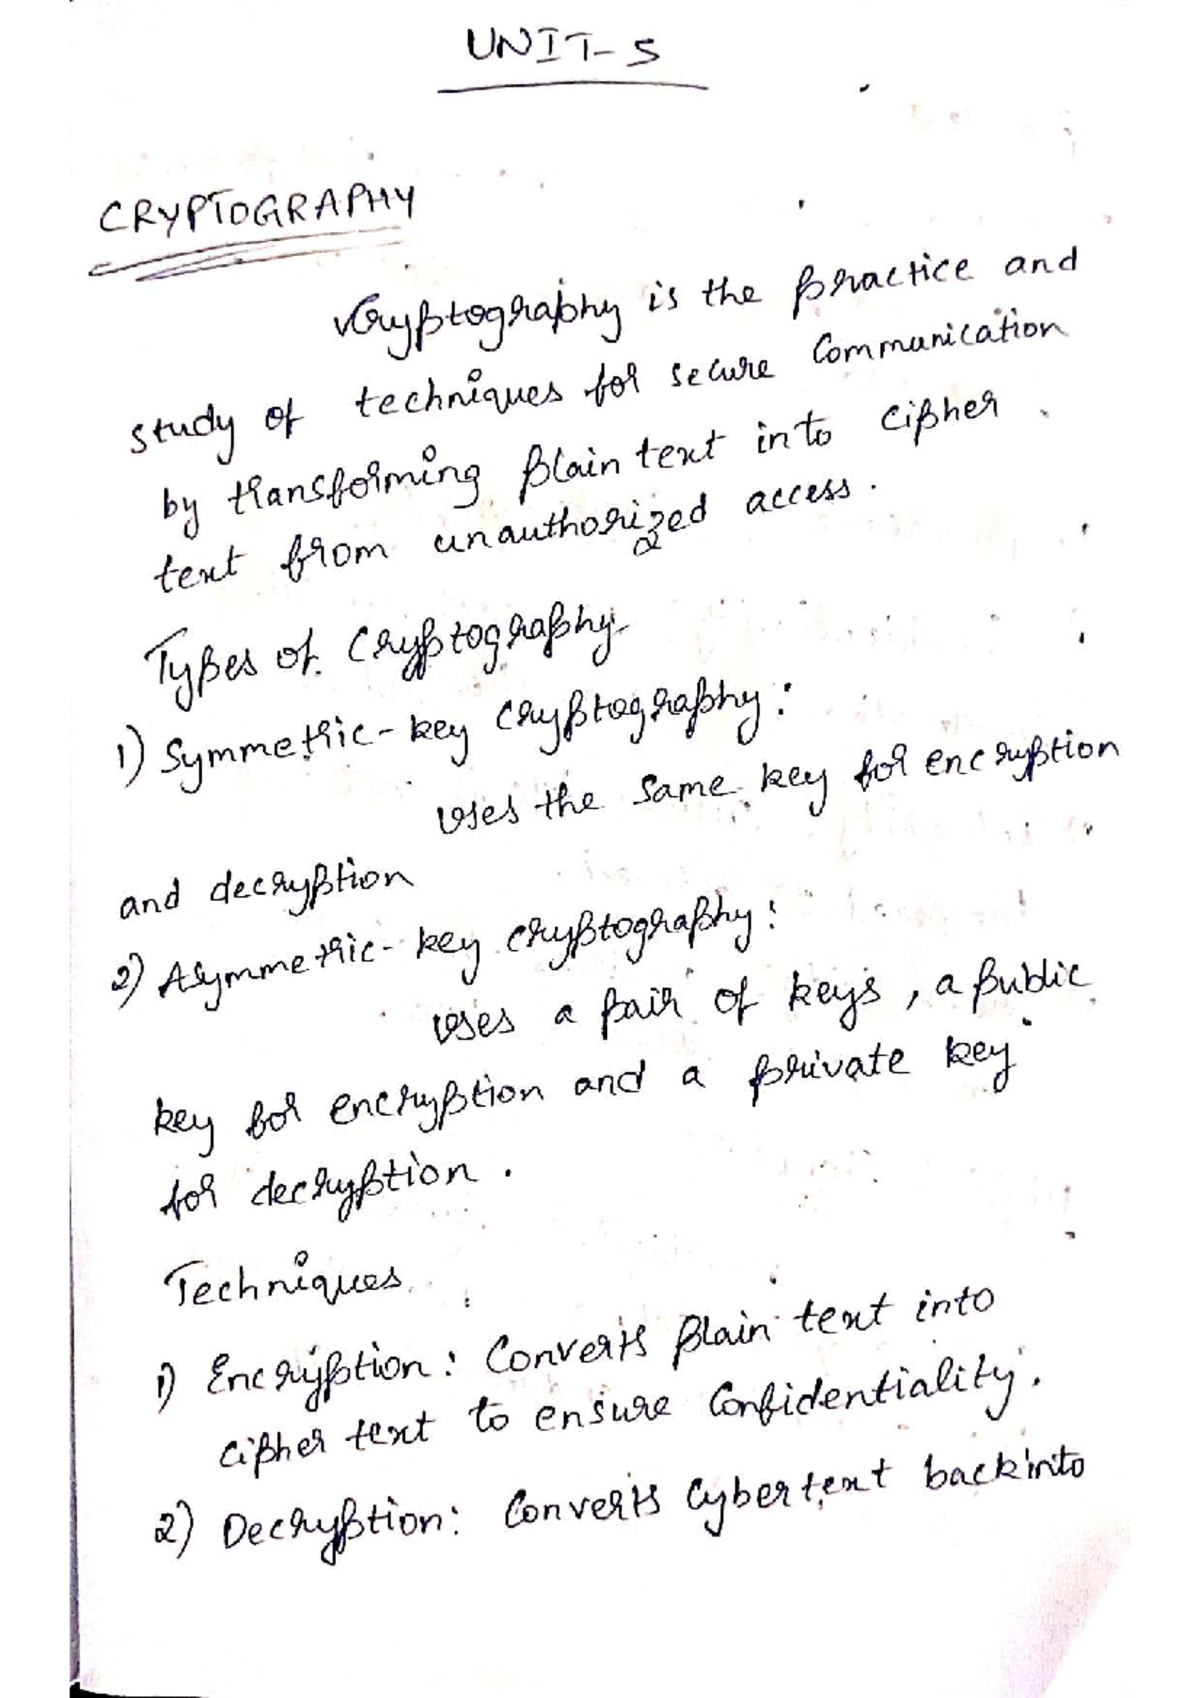 UNIT-5
CRYPTOGRAPHY
Cryptography is the practice and
study of techniques for secure Communication
by transforming plain text into cipher
text from unauthorized access.
Types of Cryptography
1) Symmetric-key Cryptography:
uses the same key for encryption
and decryption
2) Asymmetric-key cryptography:
uses a pair of keys, a public
key for encryption and a private key
for decryption.
Techniques
1) Encryption: Converts plain text into
cipher text to ensure Confidentiality.
2) Decryption: Converts Cybertext back into